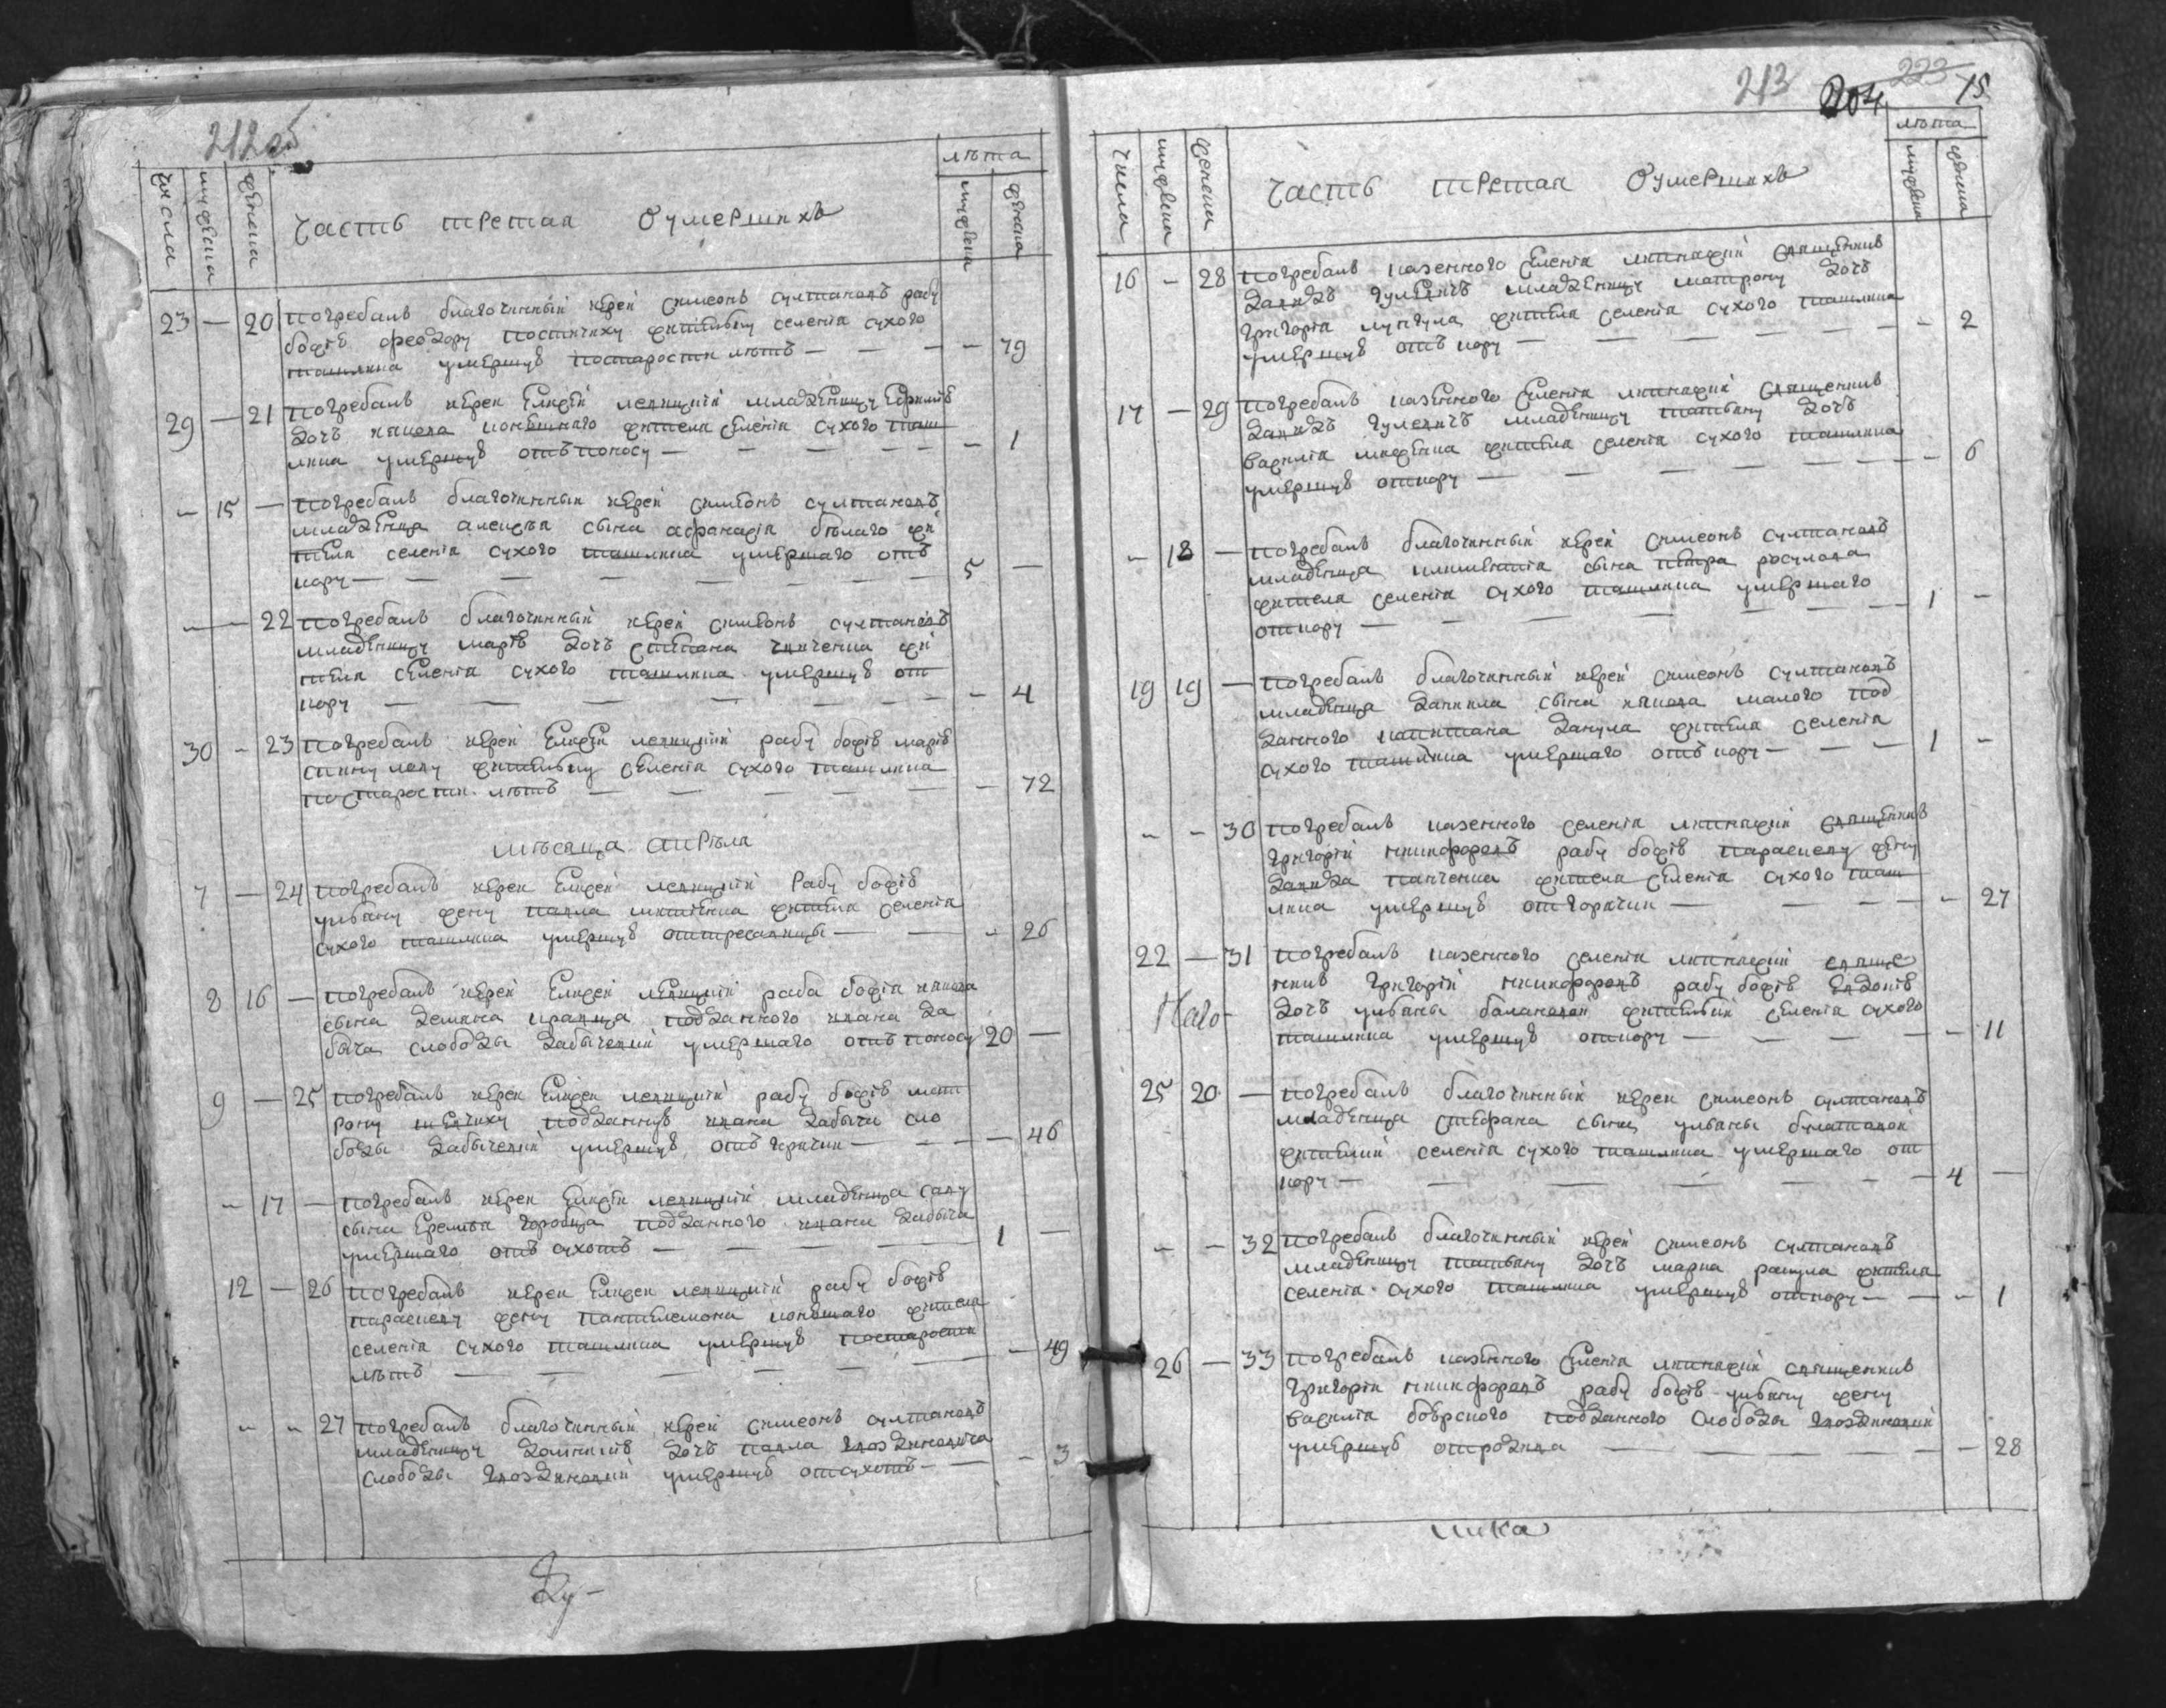 212об
числа мужеска женска
часть третая о умершихъ
лѣта
мужска женска
23 — 20 погребалъ благочинный иерей симеонъ султановъ рабу
божію феодору постичиху жителку селенія сухого
ташлика умершую по старости лѣтъ — — 79
29 — 21 погребалъ иерей елисей левицкій младеницу ефимію
дочъ якова жителя селенія сухого таш
лика умершую отъ поносу — — 1
— 15 — погребалъ благочинный иерей симеонъ султановъ
младенца алексѣя сына афанасія бѣлаго жи
теля селенія сухого ташлика умершаго отъ
кору — 5 —
— — 22 погребалъ благочинный иерей симеонъ султановъ
младеницу марію дочъ степана жи
теля селенія сухого ташлика умершую от
кору — — 4
30 — 23 погребалъ иерей елисей левицкій рабу божію марію
жителку селенія сухого ташлика
по старости лѣтъ — — 72
мѣсяца априля
7 — 24 погребалъ иерей елисей левицкій рабу божію
улияну жену павла жителя селенія
сухого ташлика умершую от трясавицы — — 26
8 16 — погребалъ иерей елисей левицкій раба божія якова
сына демяна кравца подданного ивана за
бычa слободы забычевки умершаго отъ поносу 20 —
9 — 25 погребалъ иерей елисей левицкій рабу божію мат
рону шевчиху подданную ивана забычa сло
боды забычевки умершую отъ горячки — — 46
— 17 — погребалъ иерей елисей левицкій младенца саву
сына еремѣя горобца подданного ивана забычa
умершаго отъ сухотъ — 1 —
12 — 26 погребалъ иерей елисей левицкій рабу божію
параскеву жену пантелемона жителя
селенія сухого ташлика умершую по старости
лѣтъ — — 49
— — 27 погребалъ благочинный иерей симеонъ султановъ
младеницу домникію дочъ павла гвоздиковича
слободы гвоздиковки умершую от сухотъ — — 3
Ду-
213 204 223 75
числа мужеска женска
часть третая о умершихъ
лѣта
мужеска женска
16 — 28 погребалъ казенного селенія липняжки священикъ
давидъ гулевичъ младеницу матрону дочъ
григорія лунгула жителя селенія сухого ташлика
умершую отъ кору — — 2
17 — 29 погребалъ казенного селенія липняжки священникъ
давидъ гулевичъ младеницу татияну дочъ
василія жителя селенія сухого ташлика
умершую от кору — — 6
— 18 — погребалъ благочинный иерей симеонъ султановъ
младенца климентія сына петра росулова
жителя селенія сухого ташлика умершаго
от кору — 1 —
19 19 — погребалъ благочинный иерей симеонъ султановъ
младенца даниила сына якова малого под
данного капитана данула жителя селенія
сухого ташлика умершаго отъ кору — 1 —
— — 30 погребалъ казенного селенія липняжки священникъ
григорій никифоровъ рабу божію параскеву жену
давида панченка жителя селенія сухого таш
лика умершую от горячки — — 27
22 — 31 погребалъ казенного селенія липняжки священ
никъ григорій никифоровъ рабу божію евдокію
дочъ улияны балановои жителки селенія сухого
ташлика умершую от кору — — 11
25 20 — погребалъ благочинный иерей симеонъ султановъ
младенца стефана сына улияны булатовой
жителки селенія сухого ташлика умершаго от
кору — 4 —
— — 32 погребалъ благочинный иерей симеонъ султановъ
младеницу татияну дочъ марка рацула жителя
селенія сухого ташлика умершую от кору — — 1
26 — 33 погребалъ казенного селенія липняжки священникъ
григорій никифоровъ рабу божію улияну жену
василія боярского подданного слободы гвоздиковки
умершую от родива — — 28